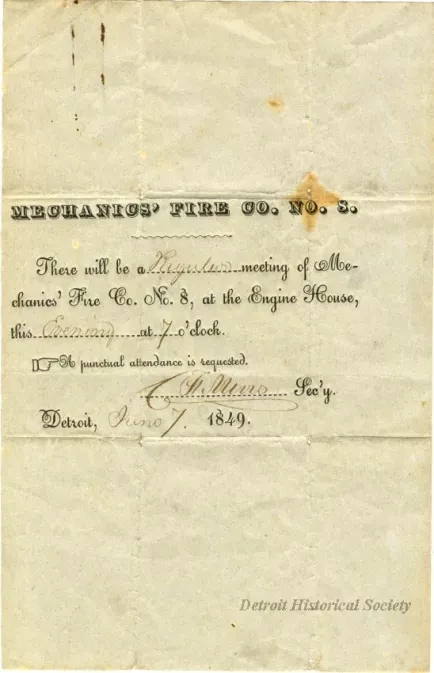 MECHANICS' FIRE CO. NO. 8.
There will be a Regular meeting of Me-
chanics' Fire Co. No. 8, at the Engine House,
this Evening at 7 o'clock.
A punctual attendance is requested.
Sec'y.
Detroit, June 7. 1849.
Detroit Historical Society